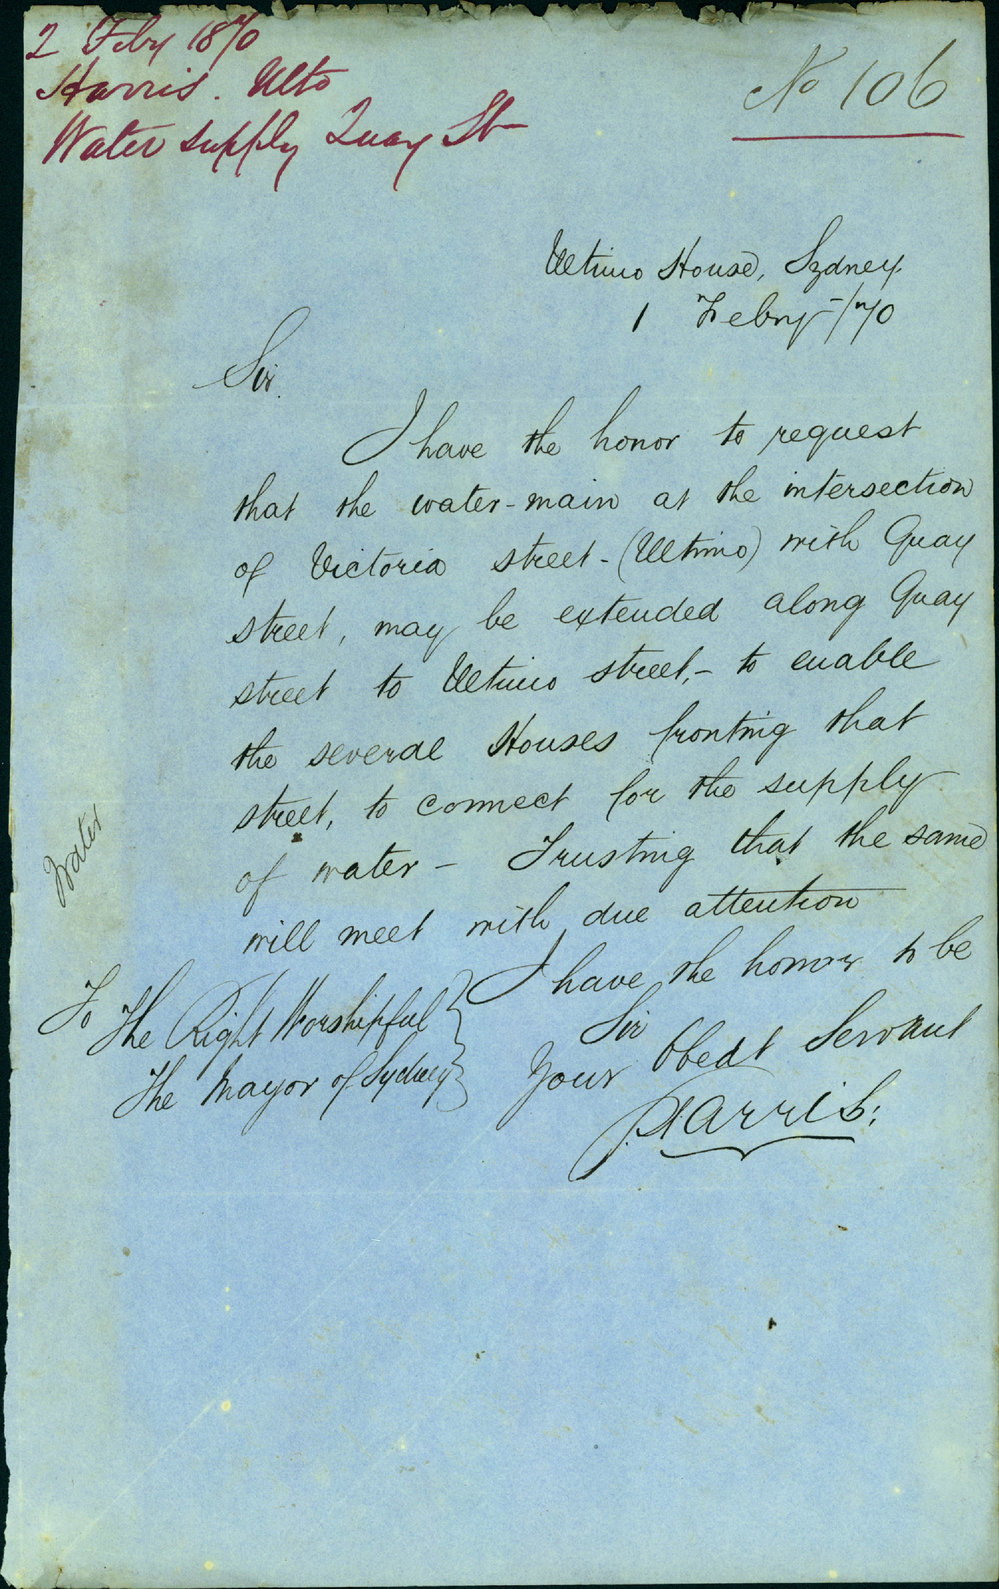 2 Feby 1870
Harris. Ulto
Water supply Quay St
No 106
Ultimo House, Sydney.
1 Febry /70
Sir.
I have the honor to request
that the water-main at the intersection
of Victoria street - (Ultimo) with Quay
street, may be extended along Quay
street to Ultimo street, - to enable
the several Houses fronting that
street, to connect for the supply
of water - Trusting that the same
will meet with due attention
I have the honor to be
Sir
Your Obedt Servant
J. Harris.
To The Right Worshipful
The Mayor of Sydney
Water